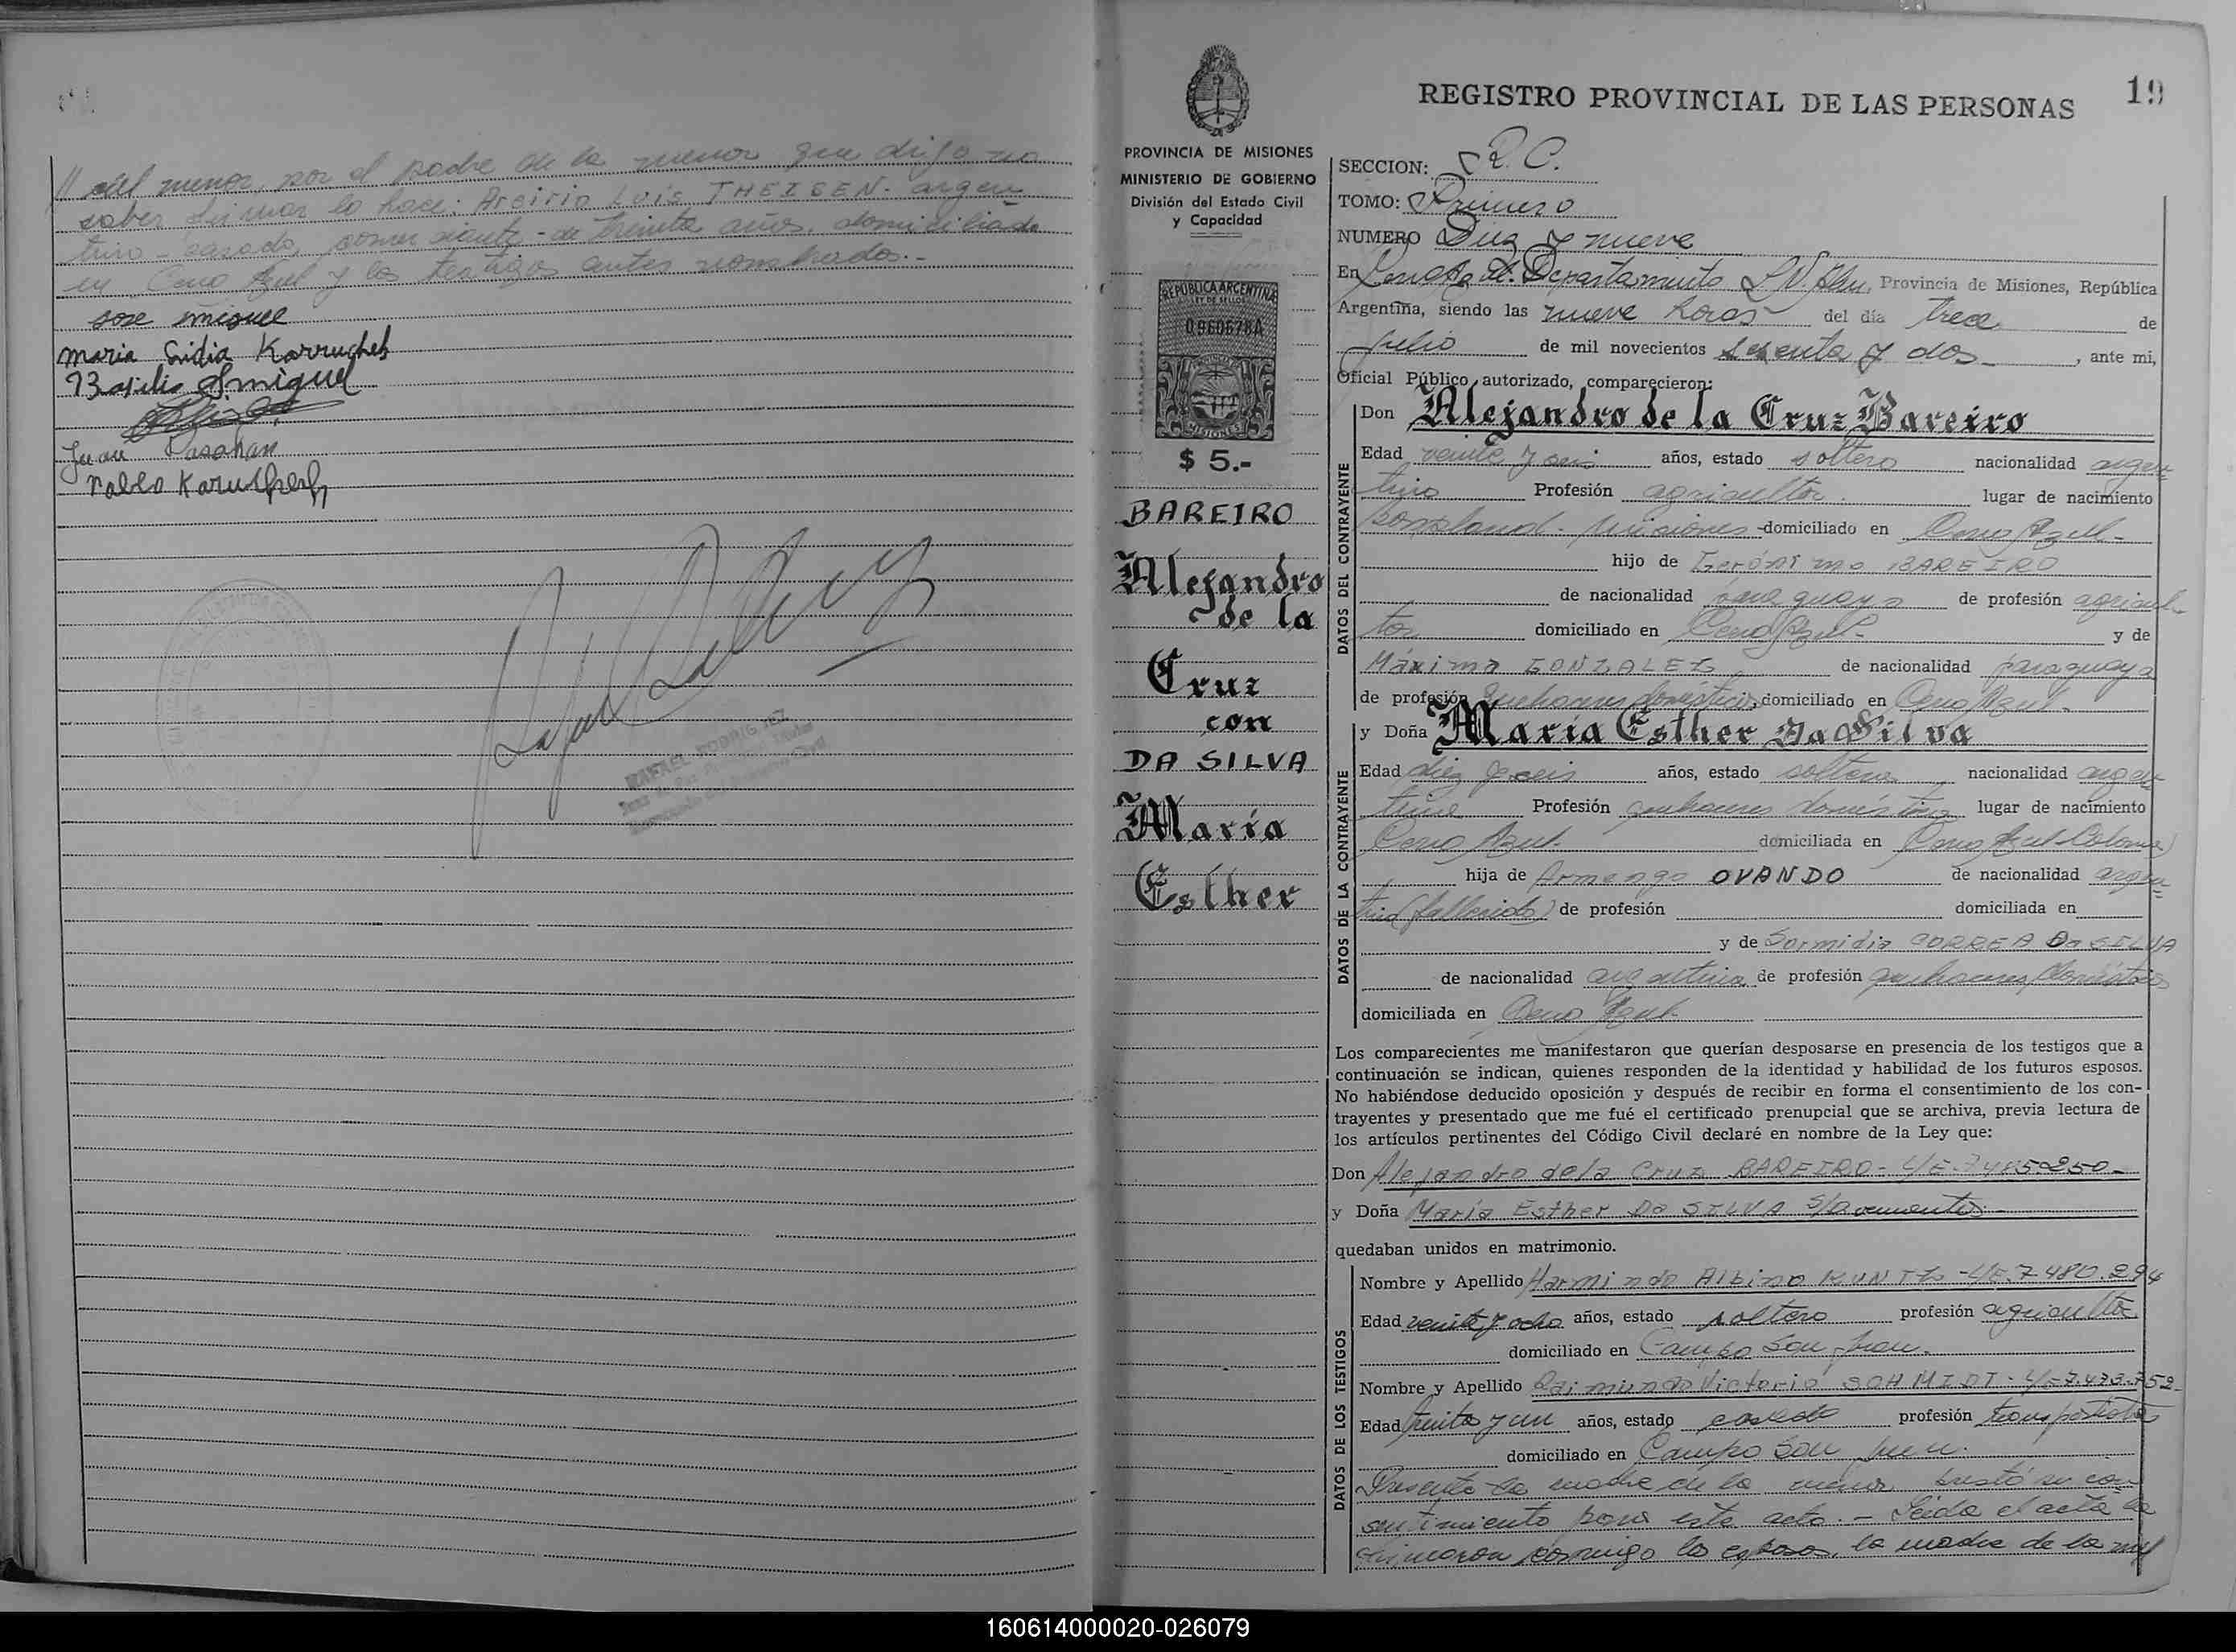 // del menor, por el padre de la menor que dijo no
saber firmar lo hace: Arcirio Luis THEISEN. argen
tino - casado, comerciante - de treinta años, domiciliado
en Cerro Azul y los testigos antes nombrados.-
jose miguel
maria Lidia Karrucheb
Basilio Smiguel
Juan Pasahan
Pablo
RAFAEL RODRIGUEZ
REGISTRO PROVINCIAL DE LAS PERSONAS
19
PROVINCIA DE MISIONES
MINISTERIO DE GOBIERNO
División del Estado Civil
y Capacidad
REPUBLICA ARGENTINA
LEY DE SELLOS
0960678A
MISIONES
$ 5.-
BAREIRO
Alejandro
de la
Cruz
con
DA SILVA
María
Esther
SECCION: R. C.
TOMO: Primero
NUMERO Diez y nueve
En Departamento L. N. Alem, Provincia de Misiones, República
Argentina, siendo las nueve horas del día trece de
Julio de mil novecientos sesenta y dos-, ante mi,
Oficial Público autorizado, comparecieron:
DATOS DEL CONTRAYENTE
Don Alejandro de la Cruz Bareiro
Edad veinte y seis años, estado soltero nacionalidad argen
tino Profesión agricultor lugar de nacimiento
Bonpland - Misiones - domiciliado en Cerro Azul-
hijo de Gerónimo BAREIRO
de nacionalidad paraguayo de profesión agricul-
tor domiciliado en Cerro Azul- y de
Máxima GONZALEZ de nacionalidad paraguaya
de profesión quehaceres domésticos, domiciliado en Cerro Azul-
DATOS DE LA CONTRAYENTE
y Doña María Esther Da Silva
Edad diez y seis años, estado soltera nacionalidad argen
tina Profesión quehaceres domésticos lugar de nacimiento
Cerro Azul- domiciliada en Cerro Azul-Colonia
hija de Armengo OVANDO de nacionalidad argen
tino (fallecido) de profesión domiciliada en
y de Sormidia CORREA Da SILVA
de nacionalidad argentina de profesión quehaceres domésticos
domiciliada en Cerro Azul-
Los comparecientes me manifestaron que querían desposarse en presencia de los testigos que a
continuación se indican, quienes responden de la identidad y habilidad de los futuros esposos.
No habiéndose deducido oposición y después de recibir en forma el consentimiento de los con-
trayentes y presentado que me fué el certificado prenupcial que se archiva, previa lectura de
los artículos pertinentes del Código Civil declaré en nombre de la Ley que:
Don Alejandro de la Cruz BAREIRO- L/E-7485.250-
y Doña María Esther Da SILVA S/Documentos-
quedaban unidos en matrimonio.
DATOS DE LOS TESTIGOS
Nombre y Apellido Harmindo Albino KUNTZ -L/E.7480.294
Edad veinte y ocho años, estado soltero profesión agricultor
domiciliado en Campo San Juan.
Nombre y Apellido Raimundo Victorio SCHMIDT- L/E-7.473.752-
Edad treinta y un años, estado casado profesión transportista
domiciliado en Campo San Juan.
Presente la madre de la menor prestó su con
sentimiento para este acto.- Leida el acta la
firmaron conmigo los esposos, la madre de la
160614000020-026079